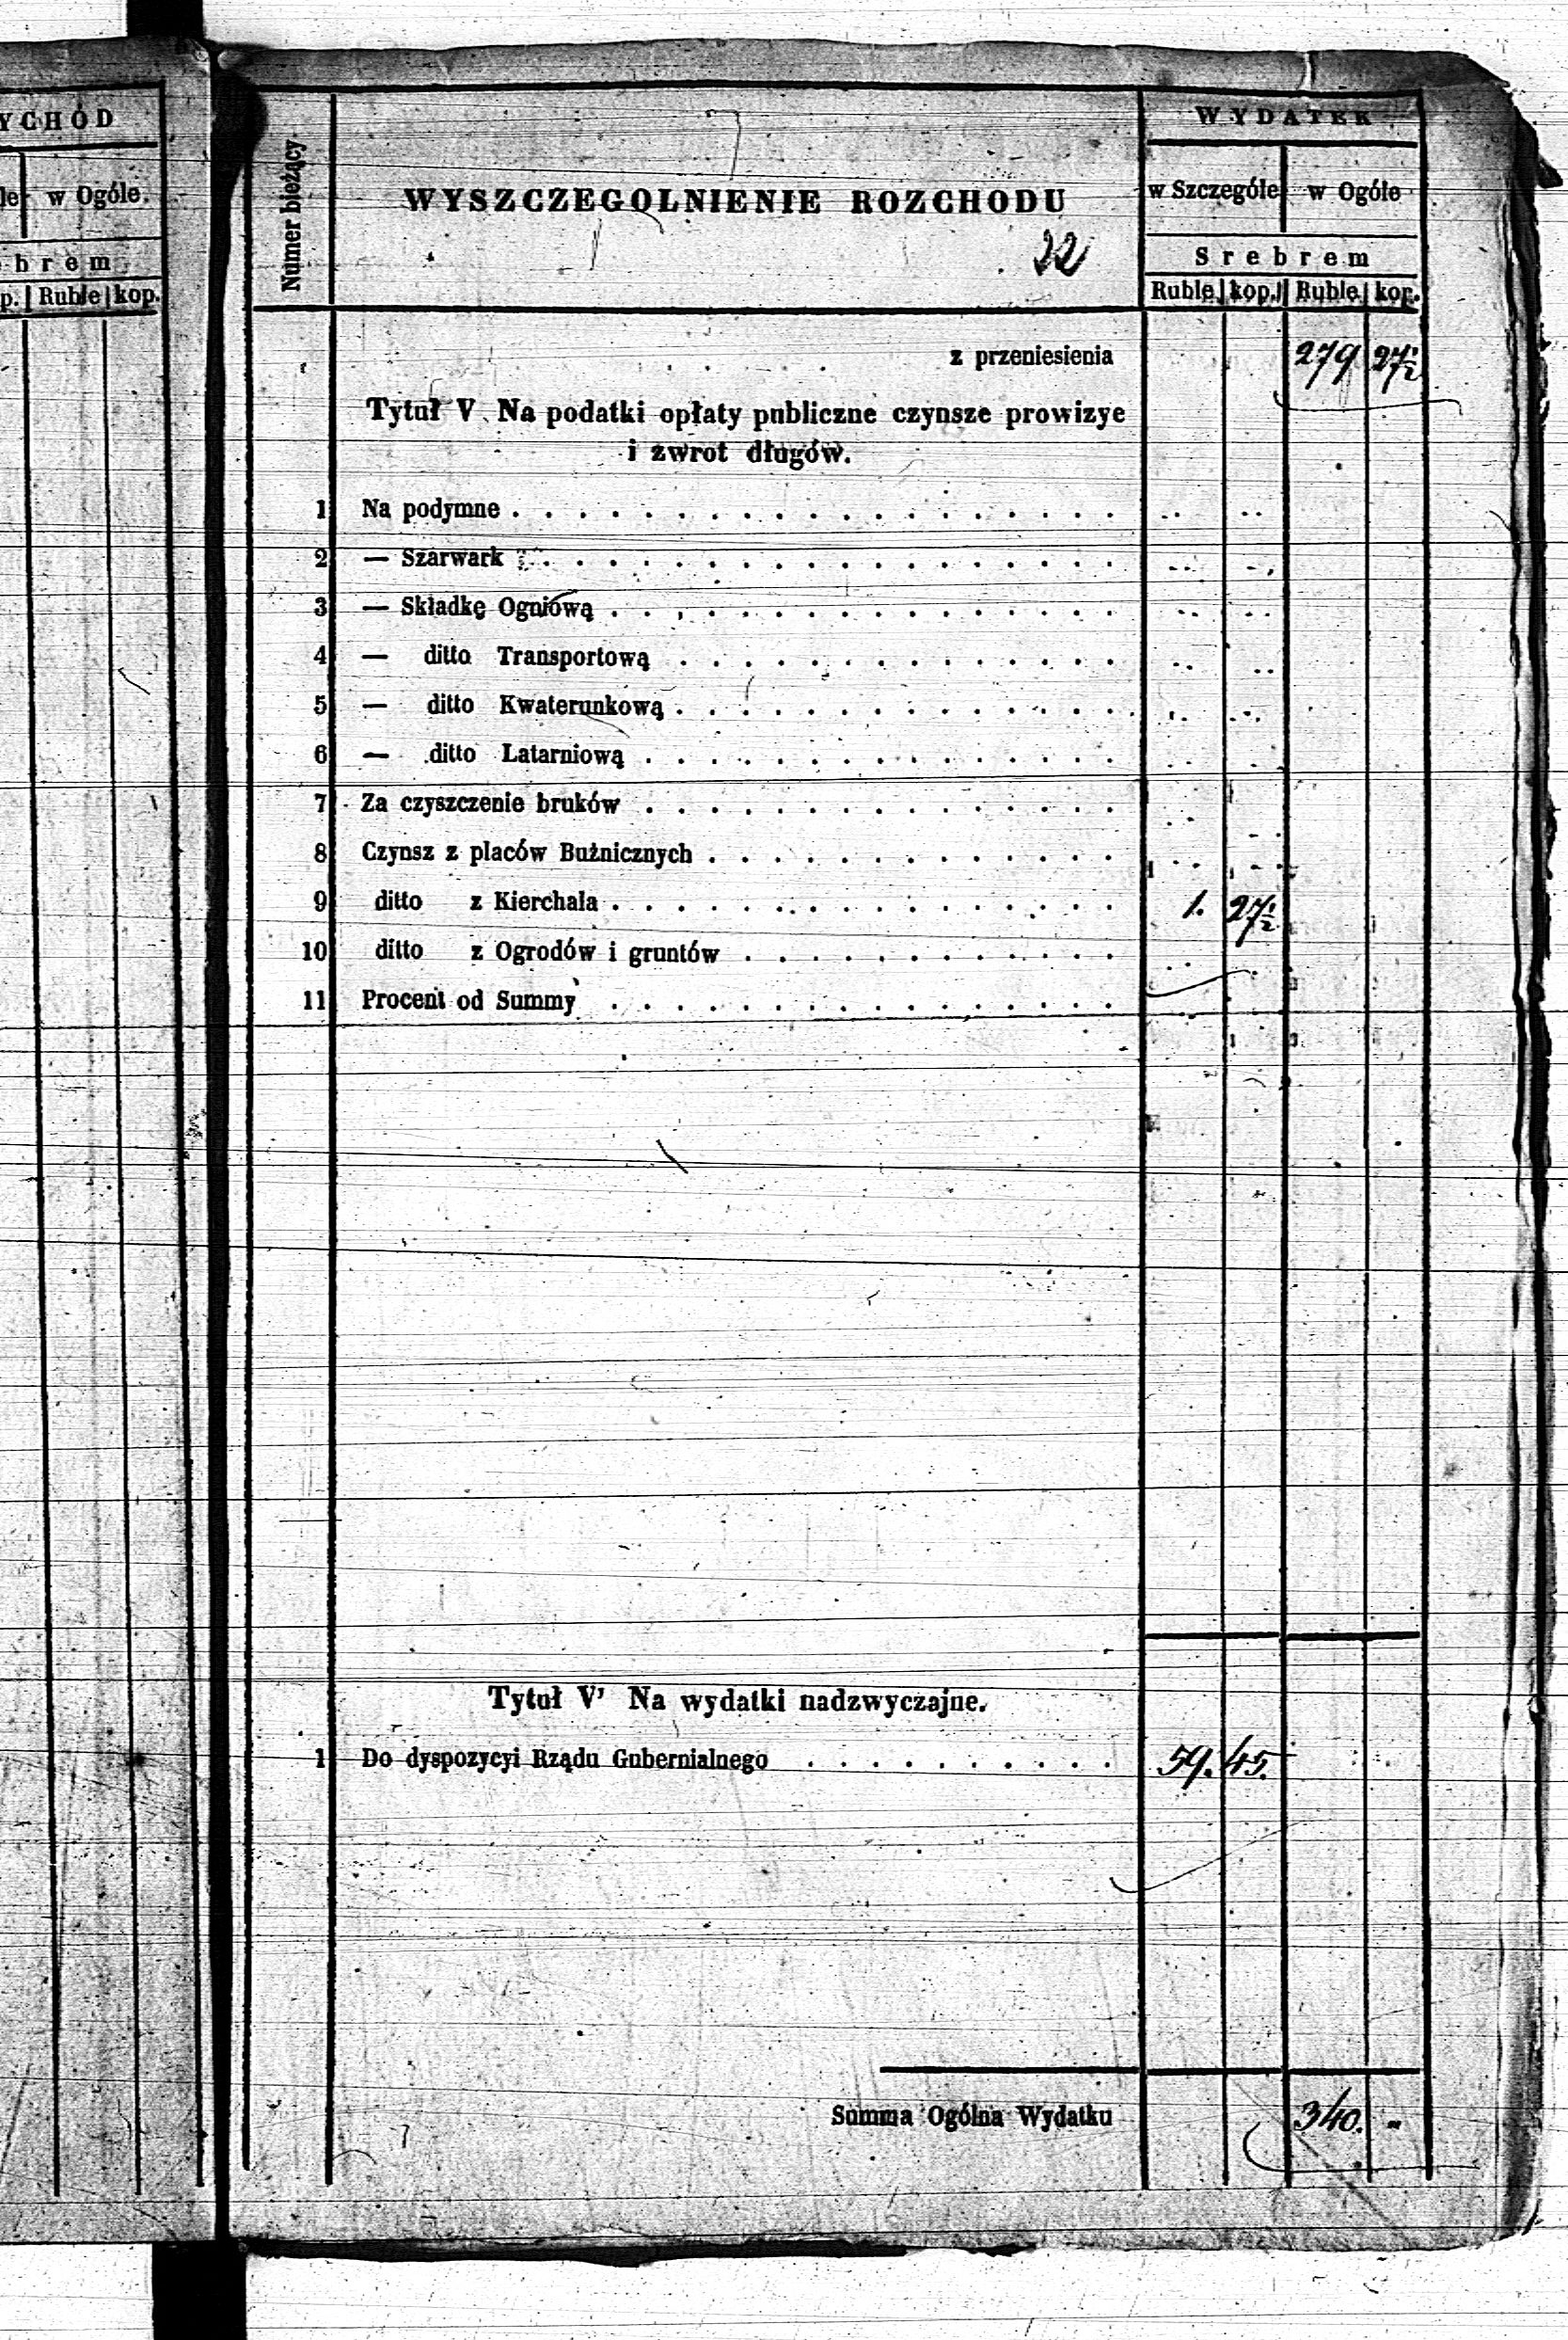 YCHÓD
le w Ogóle.
brem
p. Ruble kop.
Numer bieżący.
WYSZCZEGOLNIENIE ROZCHODU
22
WYDATEK
w Szczególe w Ogóle
Srebrem
Ruble kop. Ruble kop.
z przeniesienia 279 27½
Tytuł V. Na podatki opłaty publiczne czynsze prowizye
i zwrot długów.
1 Na podymne . . . . . . . . . . . . . . . . . . .
2 — Szarwark . . . . . . . . . . . . . . . . . .
3 — Składkę Ogniową . . . . . . . . . . . . . . . .
4 — ditto Transportową . . . . . . . . . . . . . .
5 — ditto Kwaterunkową . . . . . . . . . . . . . .
6 — ditto Latarniową . . . . . . . . . . . . . . .
7 Za czyszczenie bruków . . . . . . . . . . . . . . .
8 Czynsz z placów Bużnicznych . . . . . . . . . . . . .
9 ditto z Kierchala . . . . . . . . . . . . . . . . 1. 27½
10 ditto z Ogrodów i gruntów . . . . . . . . . . . .
11 Procent od Summy . . . . . . . . . . . . . . . .
Tytuł V' Na wydatki nadzwyczajne.
1 Do dyspozycyi Rządu Gubernialnego . . . . . . . . . . 59. 45.
Summa Ogólna Wydatku 340. "